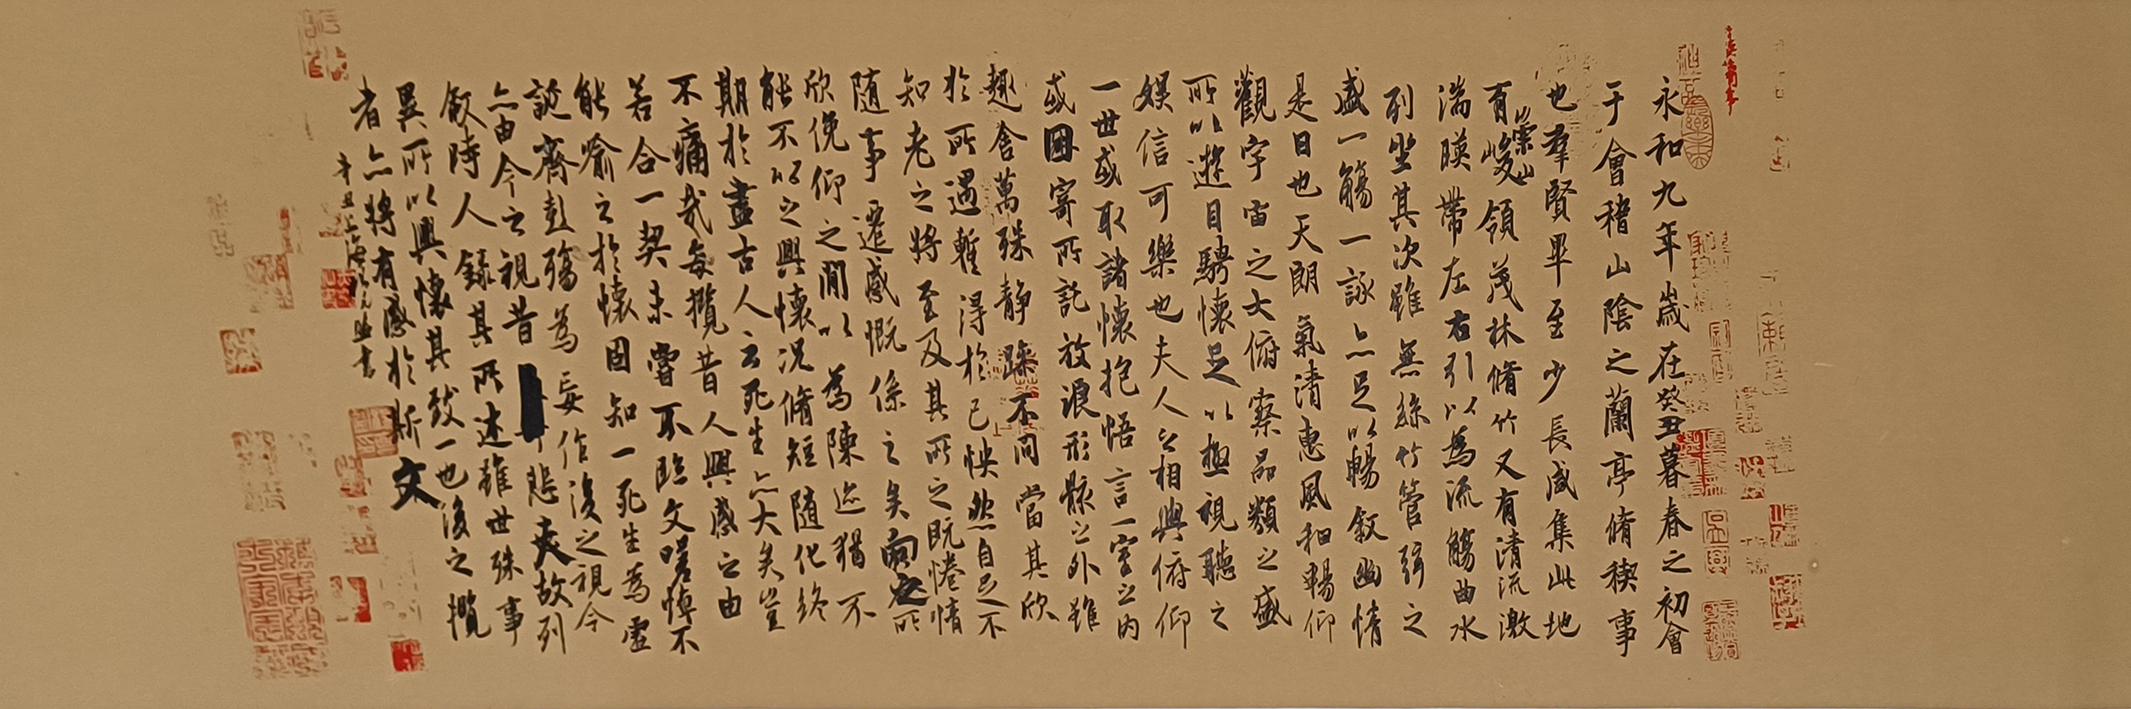 永和九年歲在癸丑暮春之初會
于會稽山陰之蘭亭脩稧事
也羣賢畢至少長咸集此地
有崇山峻領茂林脩竹又有清流激
湍暎帶左右引以為流觴曲水
列坐其次雖無絲竹管弦之
盛一觴一詠亦足以暢敘幽情
是日也天朗氣清惠風和暢仰
觀宇宙之大俯察品類之盛
所以遊目騁懷足以極視聽之
娛信可樂也夫人之相與俯仰
一世或取諸懷抱悟言一室之內
或因寄所託放浪形骸之外雖
趣舍萬殊静躁不同當其欣
於所遇暫得於己怏然自足不
知老之將至及其所之既惓情
隨事遷感慨係之矣向之所
欣俛仰之閒以為陳迹猶不
能不以之興懷況脩短隨化終
期於盡古人云死生亦大矣豈
不痛哉每攬昔人興感之由
若合一契未嘗不臨文嗟悼不
能喻之於懷固知一死生為虛
誕齊彭殤為妄作後之視今
亦由今之視昔悲夫故列
敘時人錄其所述雖世殊事
異所以興懷其致一也後之攬
者亦將有感於斯文
辛丑上海书